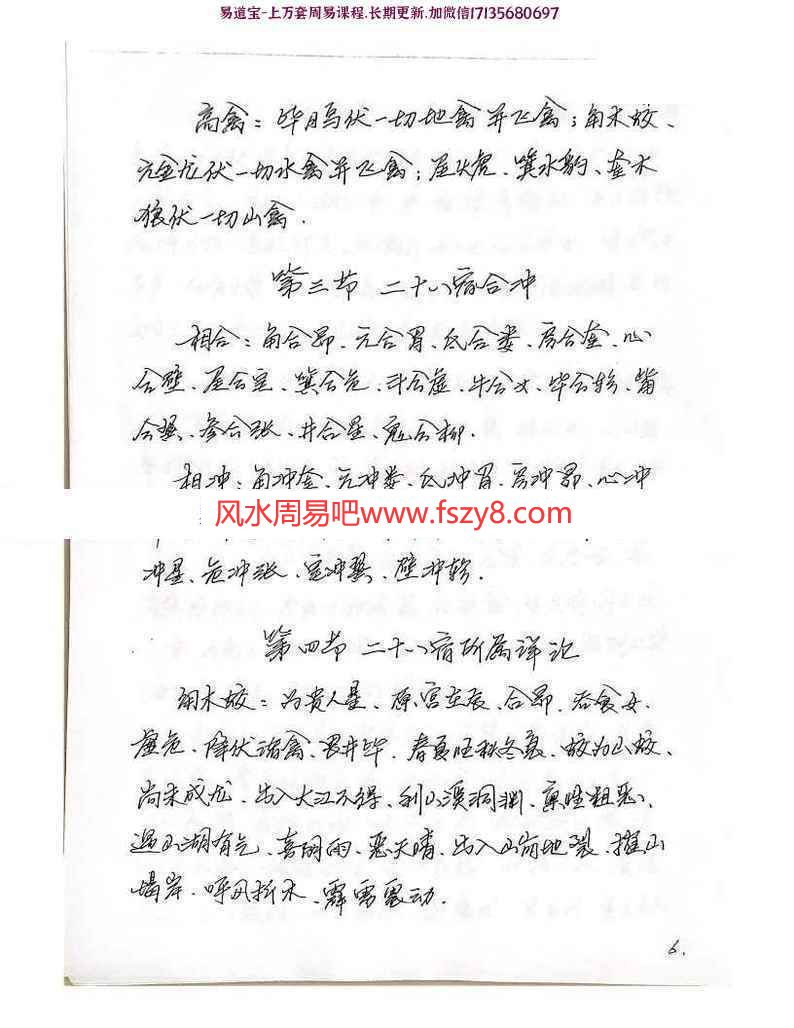 易道宝-上万套周易课程.长期更新.加微信17135680697
高禽：毕月乌伏一切地禽并飞禽；角木蛟、
亢金龙伏一切水禽并飞禽；尾火虎、箕水豹、奎木
狼伏一切山禽.
第三节 二十八宿合冲
相合：角合昴、亢合胃、氐合娄、房合奎、心
合壁、尾合室、箕合危、斗合虚、牛合女、毕合轸、觜
合翼、参合张、井合星、鬼合柳.
相冲：角冲奎、亢冲娄、氐冲胃、房冲昴、心冲
风水周易吧www.fszy8.com
冲星、危冲张、室冲翼、壁冲轸.
第四节 二十八宿所属详论
角木蛟：为贵人星、原宫在辰、合昴、吞食女、
虚危、降伏诸禽、畏井毕、春夏旺秋冬衰、蛟为山蛟、
尚未成龙、出入大江不得、利山溪洞渊、禀性粗恶、
遇山湖有气、喜阴雨、恶天晴、出入山岗地裂、摧山
塌岸、呼风折木、霹雷震动.
6.